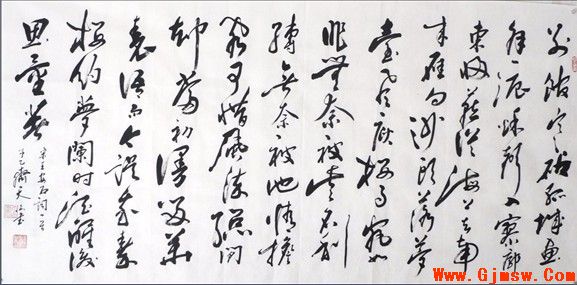 别馆寒砧孤城画
角一派秋声入寥廓
东归燕从海上去南
来雁向沙头落楚
台风庾楼月宛如
昨无奈被些名利
缚无奈被他情担
阁可惜风流总闲
却当初漫留华
表语而今误我秦
楼约梦阑时酒醒后
思量着
宋王安石词一首
Www.Gjmsw.Com